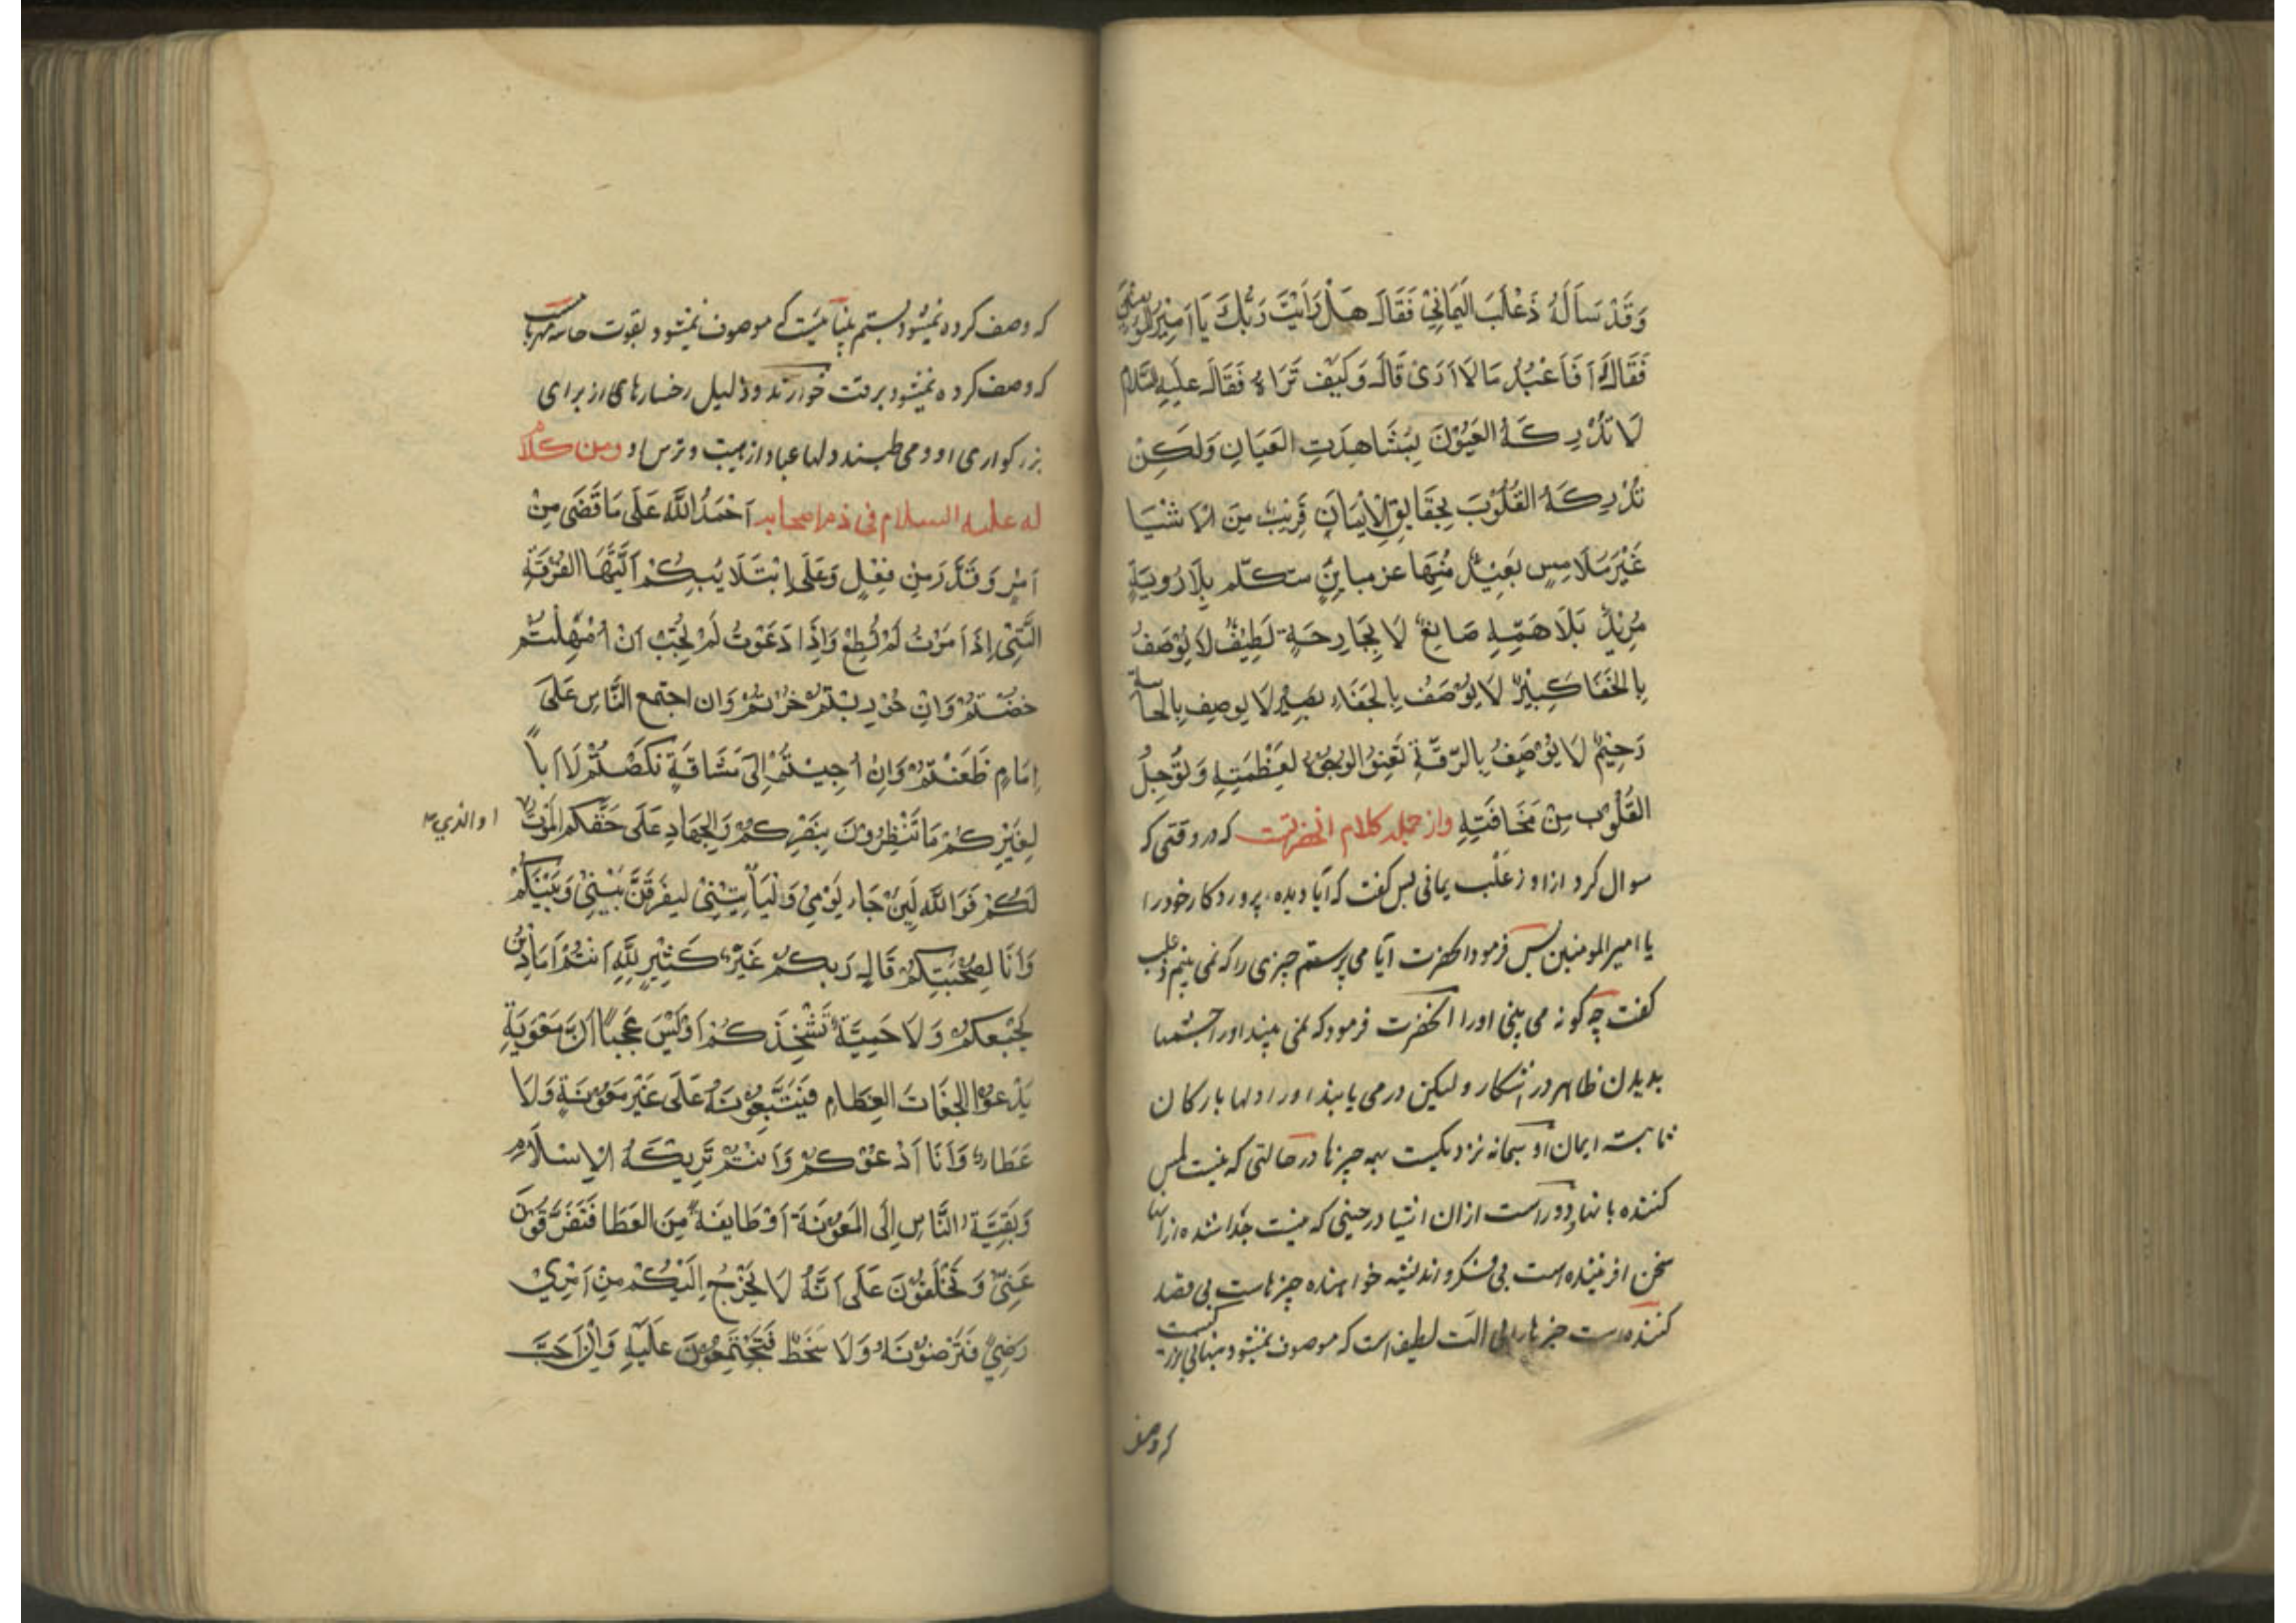 وَقَدْ سَاَلَهُ ذَعْلَبَ الیَمَانِیْ فَقَالَ هَلْ رَاَیْتَ رَبُّكَ یَا اَمِیْرَ المُؤمِنِیْنَ
فَقَالَ اَفَاَعْبُدُ مَا لَا اَرَیٰ قَالَ وَکَیْفَ تَرَاهُ فَقَالَ عَلَیْهِ السَّلَام
لَا تُدْرِكَهُ العُیُوْنَ بِمُشَاهِدَتِ العَیَانِ وَلَکِنْ
تُدْرِكَهُ القُلُوْبَ بِحَقَایِقِ الْاِیْمَانِ قَرِیْبٌ مِنَ الاَشْیَا
غَیْرَ مُلَامِسٍ بَعِیْدٌ مِنْهَا غیر مباینٍ متکلم بِلَا رُوِیَةٍ
مُرِیْدٌ بَلَا هَمَّةٍ صَانِعٌ لَا بِجَارِحَةٍ لَطِیْفٌ لَا یُوْصَفُ
بِالخَفَا کَبِیْرٌ لَا یُوْصَفُ بِالجَفَاءِ بَصِیْرٌ لَا یوصف بِالحاسة
رَحِیْمٌ لَا یُوْصَفُ بِالرِّقَّةِ تَعْنِوُ الوُجُوْهُ لِعَظْمَتِهِ وَتُوْجِلُ
القُلُوْبَ مِنْ مَخَافَتِهِ واز جمله کلام انحضرتست که در وقتی که
سوال کرد از او ذعلب یمانی پس گفت که آیا دیده‌ء پروردکار خود را
یا امیرالمومنین پس فرمود انحضرت آیا می پرستم چیزی را که نمی بینم ذعلب
گفت چه گونه می بینی اورا انحضرت فرمود که نمی بیند اورا چشمها
بدیدن ظاهر در اشکار و لیکن در می یابند اورا دلها بارکان
ثابته ایمان او سبحانه نزدیکست بهمه چیزها در حالتی که نیست لمس
کننده بانها و دور است از ان اشیا در حینی که نیست جدا شده از انها
سخن افریننده است بی فکر و اندیشه خواهنده چیزهاست بی قصد
کننده است چیزها را بی الت لطیف است که موصوف نمیشود بپنهانی بزرگیست
که وصف
که وصف کرده نمیشود بستم بیناییست که موصوف نمیشود بقوت حاسه مهربانیست
که وصف کرده نمیشود برقت خوارند و ذلیل رخسارهای از برای
بزرکواری او و می طپند دلها عباد از هیبت و ترس او ومن کلام
له علیه السلام فی ذم اصحابه اَحْمَدُ اللَّهَ عَلَی مَا قَضَی مِنْ
اَمْرٍ وَقَدَّرَ مِنْ فِعْلٍ وَعَلَی اِبْتَلَا یُبِکُمْ اَیَّتُهَا الفُرْقَةِ
الَّتِیْ اِذَا اَمَرْتُ لَمْ تُطِعْ وَاِذَا دَعَوْتُ لَمْ تُجِبْ اَنْ اُمْهِلْتُمْ
خضْتُمْ وَانْ حُوْرِبْتُمْ خُرْتُمْ وَان اجتمع النَّاسِ عَلَیَ
اِمَامٍ طَعَنْتُمْ وَاِنْ اُجِیْئتُمْ اِلَیٰ مَشَاقَةٍ نَکَصْتُمْ لَا اَباً
لِغَیْرِکُمْ مَا تَنْظِرُوْنَ بِنَصْرِکُمْ وَالجِهَادِ عَلَی حَقِّکُم المَوْتُ
او الذی
لَکُمْ فَوَاللَّهِ لَئِنْ جَاءَ یَوْمِیْ وَلْیَاْتِیَنِیْ لیفَرِقَنَّ بَیْنِیْ وَبَیْنَکُمْ
وَاَنَا لِصُحْبَتِکُمْ قَالٍ وَبِکُمْ غَیْرَ کَثِیْرٍ لِلَّهِ اَنْتُمْ اَمَا دِیْنُ
یَجْمَعکُمْ وَلَا حَمِیَّةٌ تَشْخِذَکُمْ اَوَلَیْسَ عَجَباً اَنَّ مَعْوِیَةِ
یَدْعُوْا الجفَاتَ العِظَامِ فَیَتَّبِعُوْنَهُ عَلَی غَیْرِ مَعُوْنَةٍ وَلَا
عَطَاء وَاَنَا اَدْعُوْکُمْ وَاَنْتُمْ تَرِیْکَهُ الاِسْلَامِ
وَبَقِیَّةُ النَّاسِ اِلَی المَعُوْنَةِ اَوْ طَایِفَةٌ مِنَ العَطَا فَتَفَرَّقُوْنَ
عَنِیْ وَتَخْلَفُوْنَ عَلَی اَنَّهُ لَا یَخْرُجُ اِلَیْکُمْ مِنْ اَمْرِیْ
رَضِیً فَتَرْضُوْنَهُ وَلَا سَخَطٌ فَتَجْتَمِعُوْنَ عَلَیْهِ وَاِنَّ اَحَبَّ